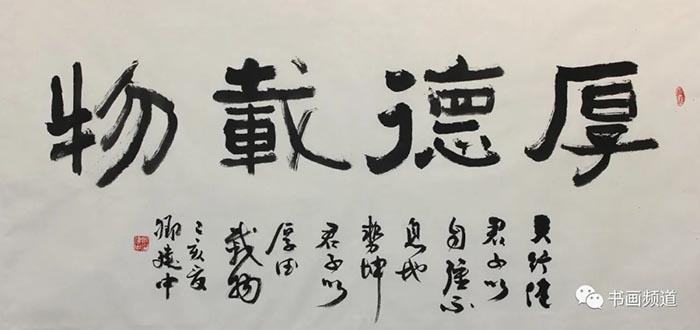 厚德載物
天行健
君子以
自強不
息地
勢坤
君子以
厚德
載物
己亥夏
卿建中
书画频道